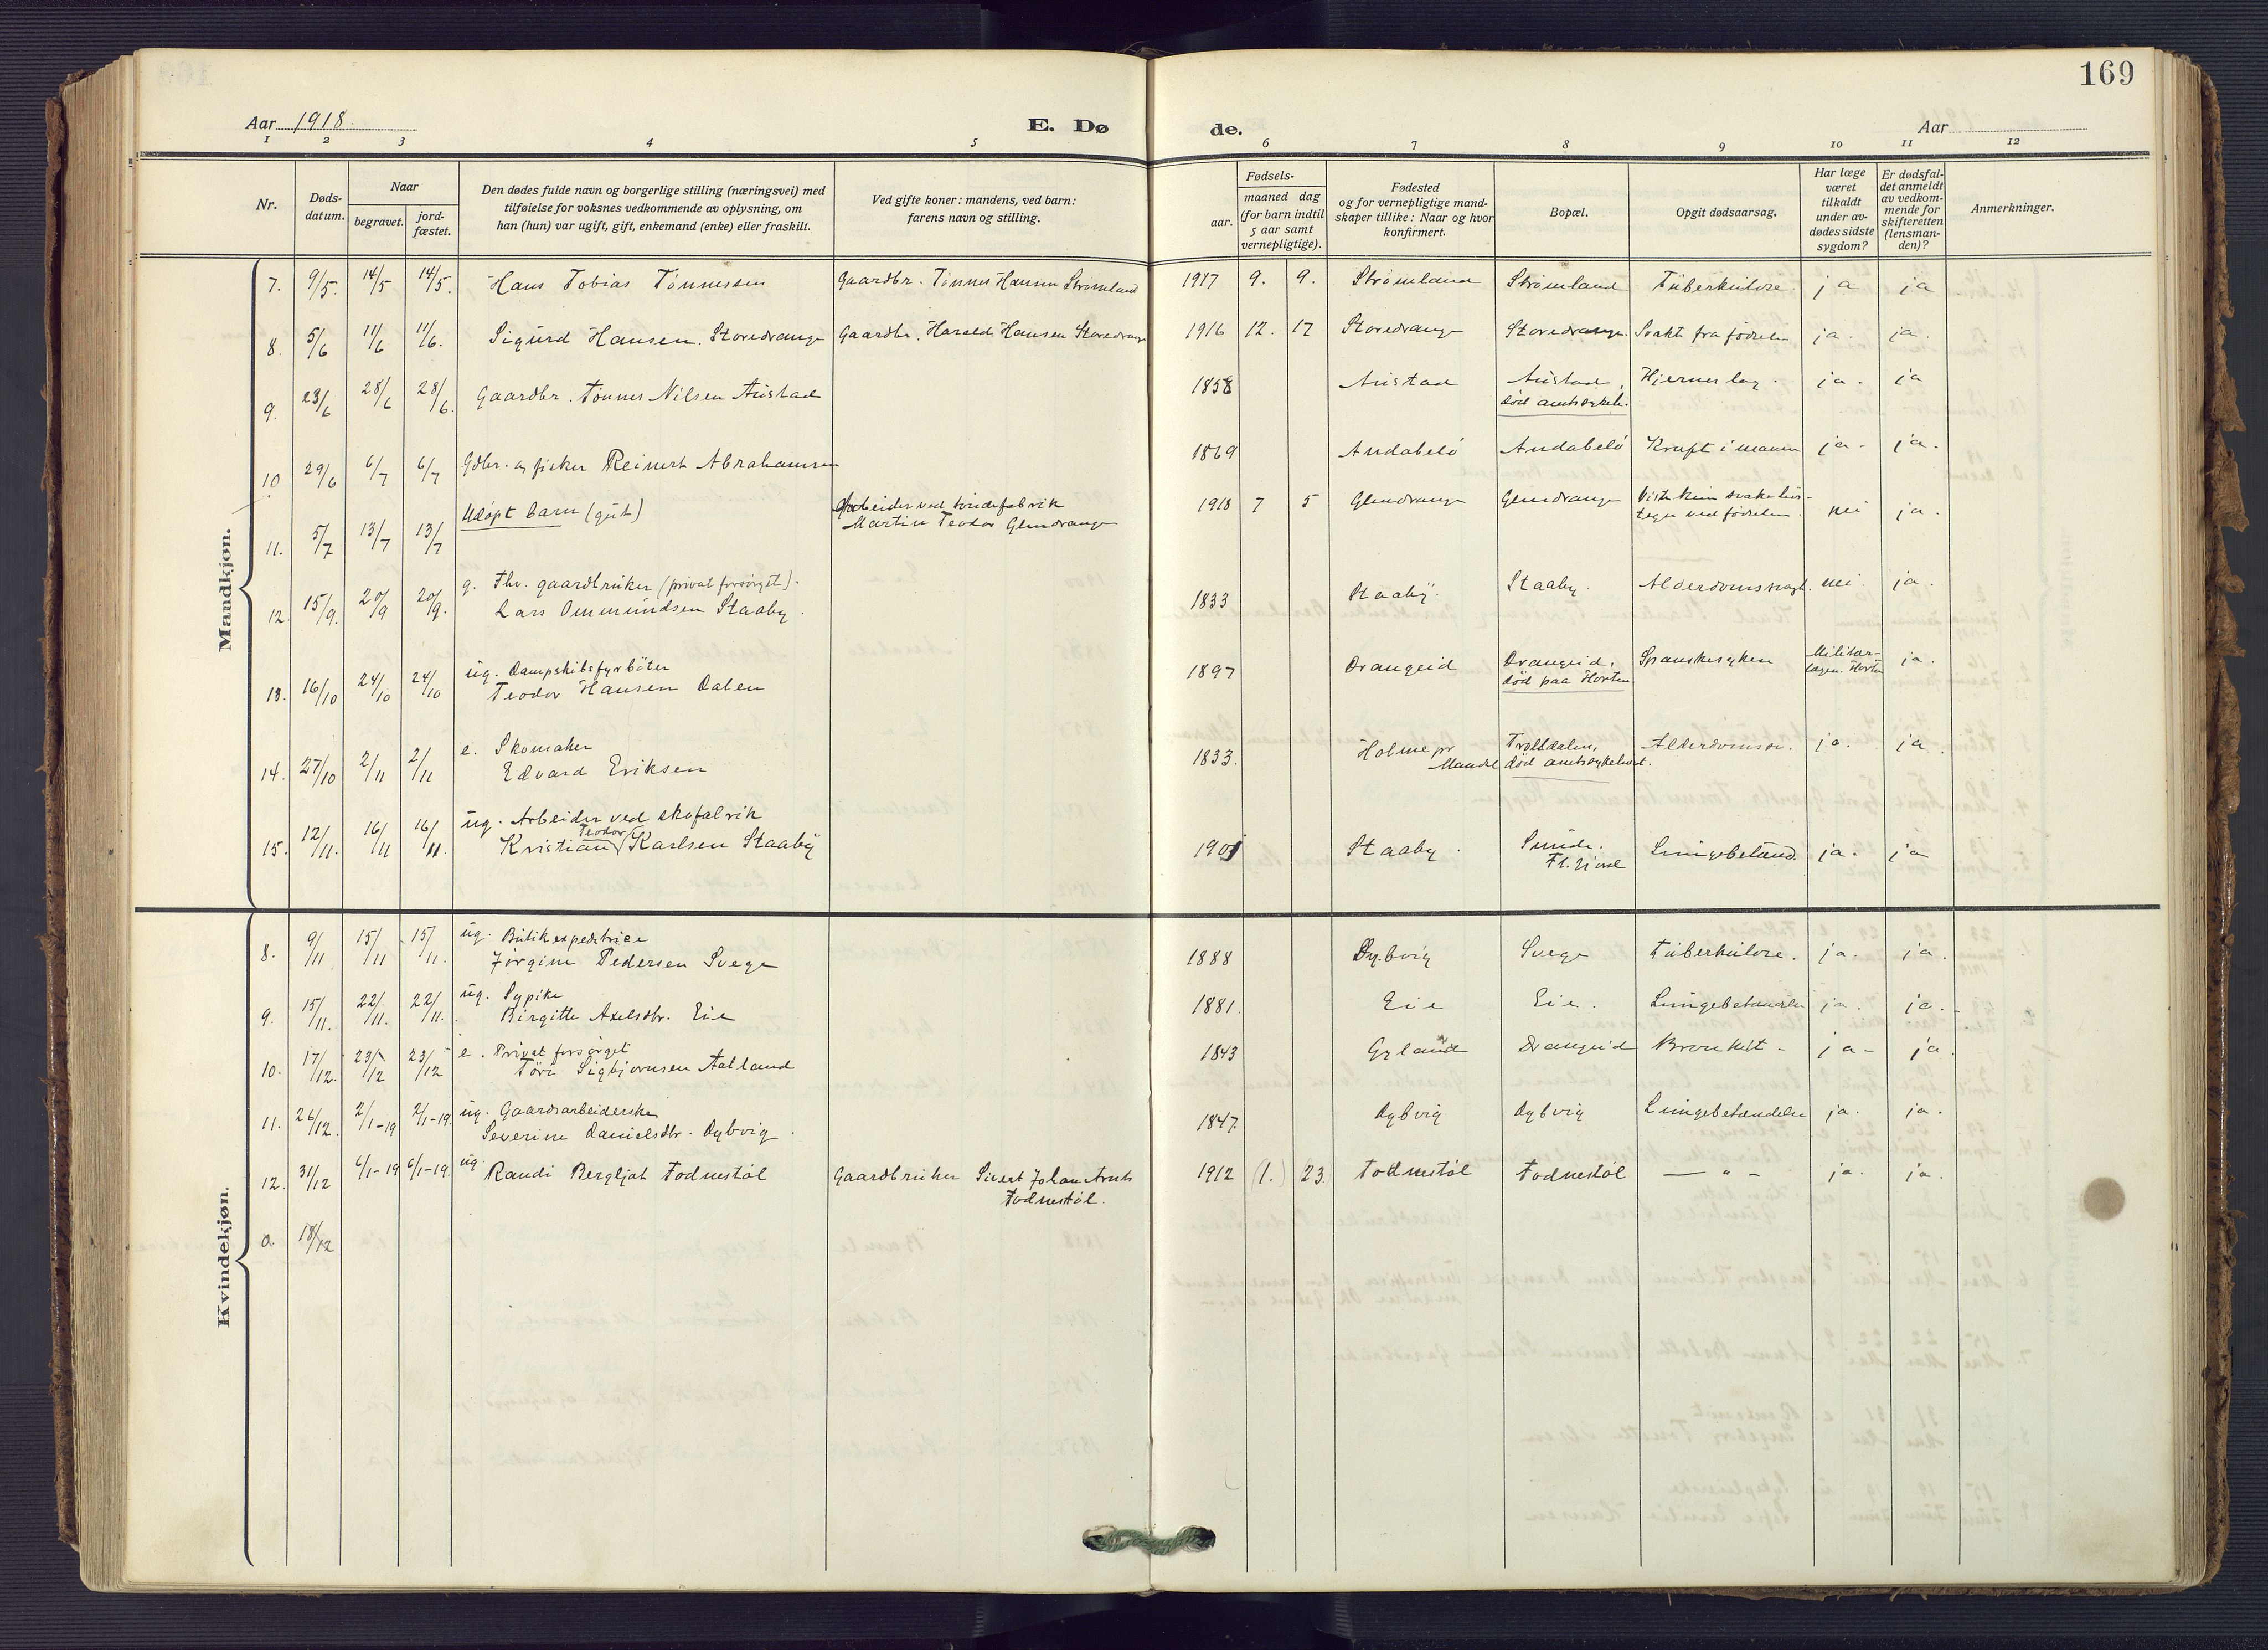 169
Aar 1918.
E. Dø de.
Aar
1 2 3 4 5 6 7 8 9 10 11 12
Nr.
Døds-
datum.
Naar
begravet.
jord-
fæstet.
Den dødes fulde navn og borgerlige stilling (næringsvei) med
tilføielse for voksnes vedkommende av oplysning, om
han (hun) var ugift, gift, enkemand (enke) eller fraskilt.
Ved gifte koner: mandens, ved barn:
farens navn og stilling.
Fødsels-
aar.
maaned dag
(for barn indtil
5 aar samt
vernepligtige).
Fødested
og for vernepligtige mand-
skaper tillike: Naar og hvor
konfirmert.
Bopæl.
Opgit dødsaarsag.
Har læge
været
tilkaldt
under av-
dødes sidste
sygdom?
Er dødsfal-
det anmeldt
av vedkom-
mende for
skifteretten
(lensman-
den)?
Anmerkninger.
Mandkjøn.
7. 9/5. 14/5 14/5. Hans Tobias Tönnessen Gaardbr. Tönnes Hansen Strömland 1917 9. 9. Strömland Strömland Tüberkülose ja ja
8. 5/6 11/6 11/6. Sigürd Hansen, Storedrange Gaardbr. Harald Hansen Storedrange 1916 12. 17 Storedrange Storedrange. Svakt fra födselen ja. ja.
9. 23/6 28/6 28/6. Gaardbr. Tönnes Nilsen Aüstad 1858 Aüstad Aüstad, Hjerneslag. ja. ja
död amtssykeh.
10 29/6 6/7 6/7 Gdbr. og fisker Reinert Abrahamsen 1869 Andabelö Andabelö Kræft i maven ja. ja.
11. 5/7 13/7 13/7 Udöpt barn (güt) Arbeider ved töndefabrik
Martin Teodor Glendrange 1918 7 5 Glendrange Glendrange Viste kün svake livs-
tegn ved födselen. nei ja.
12. 15/9. 20/9 20/9. g. Fhv. gaardbrüker (privat forsörget).
Lars Ommündsen Staaby. 1833 Staaby. Staaby. Alderdomssvagh. nei. ja.
13. 16/10 24/10 24/10 üg. Dampskibsfyrböter
Teodor Hansen Dalen 1897 Drangeid Drangeid. Spanskesyken Militær-
lægen Horten ja.
död paa Horten
14. 27/10 2/11 2/11 e. Skomaker
Edvard Eriksen 1833. Holme pr
Mandal Trolldalen, Alderdomssv. ja. ja.
död amtssykehuset.
15. 12/11. 16/11 16/11. üg. Arbeider ved skofabrik
Teodor
Kristian Karlsen Staaby 1901 Staaby. Sünde.
Fl. fjord Lüngebetænd. ja. ja
Kvindekjøn.
8. 9/11 15/11 15/11. üg. Bütikexpeditrice
Jörgine Pedersen Svege 1888 Dybvig Svege Tüberkülose. ja. ja.
9. 15/11. 22/11. 22/11. üg. Sypike
Birgitte Axelsdtr. Eie 1881. Eie Eie. Lüngebetændelse ja. ja.
10. 17/12. 23/12 23/12 e. Privat forsörget
Tori Sigbjörnsen Aatland 1843 Gyland Drangeid Bronkit - ja - ja.
11. 26/12. 2/1-19 2/1-19. üg. Gaardsarbeiderske
Severine Danielsdtr. Dybvig. 1847. Dybvig Dybvig Lüngebetændelse ja. ja.
12. 31/12 6/1-19 6/1-19. üg. Randi Bergljot Fodnestöl Gaardbrüker Sivert Johan Arnts
Fodnestöl. 1912 (1.) 23. Fodnestöl Fodnestöl — " — ja. ja.
0. 18/12